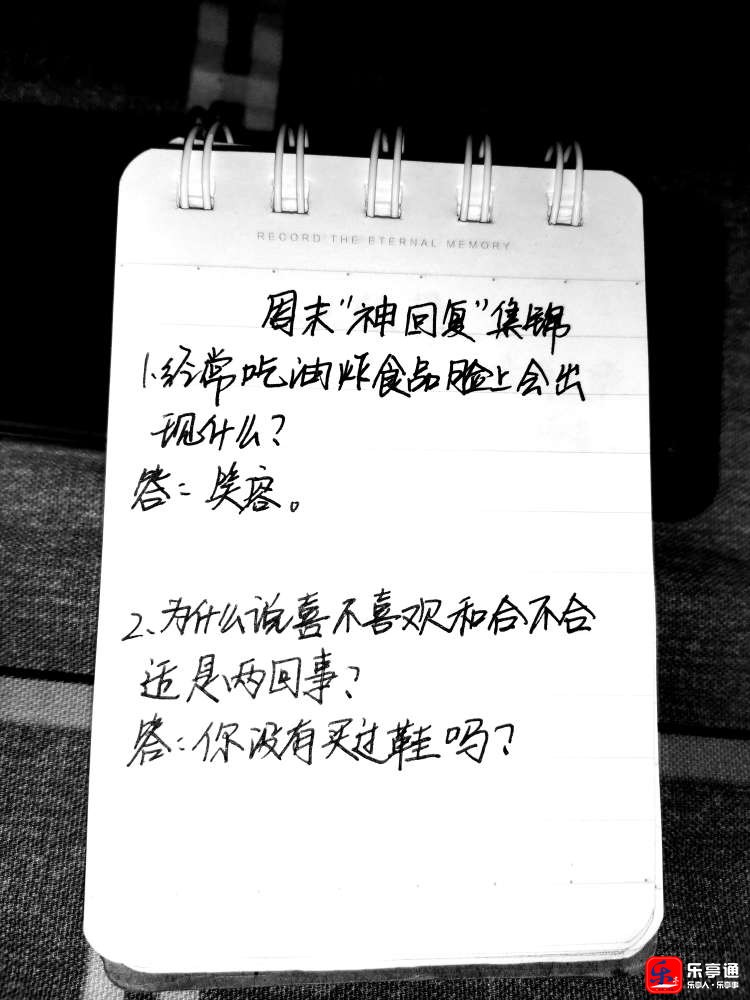 RECORD THE ETERNAL MEMORY
周末"神回复"集锦
1.经常吃油炸食品脸上会出
现什么?
答:笑容。
2、为什么说喜不喜欢和合不合
适是两回事?
答:你没有买过鞋吗?
乐亭通
乐亭人·乐亭事